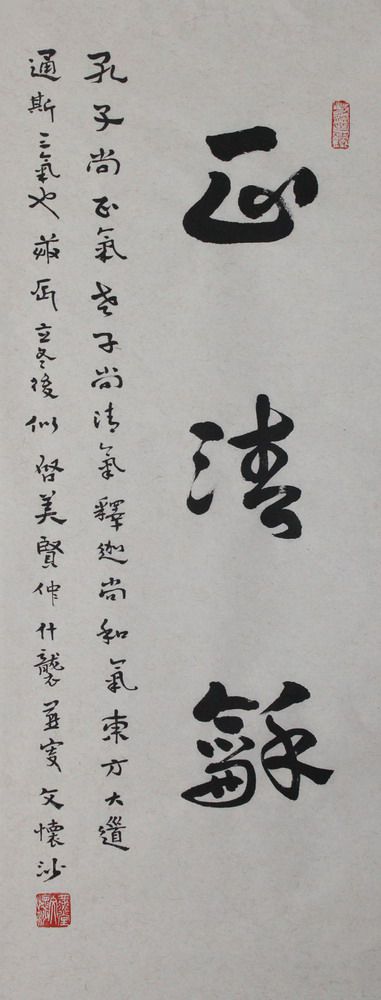 正清龢
孔子尚正氣老子尚清氣釋迦尚和氣東方大道
通斯三氣也立冬後似啓美賢伉什襲燕叟文懷沙